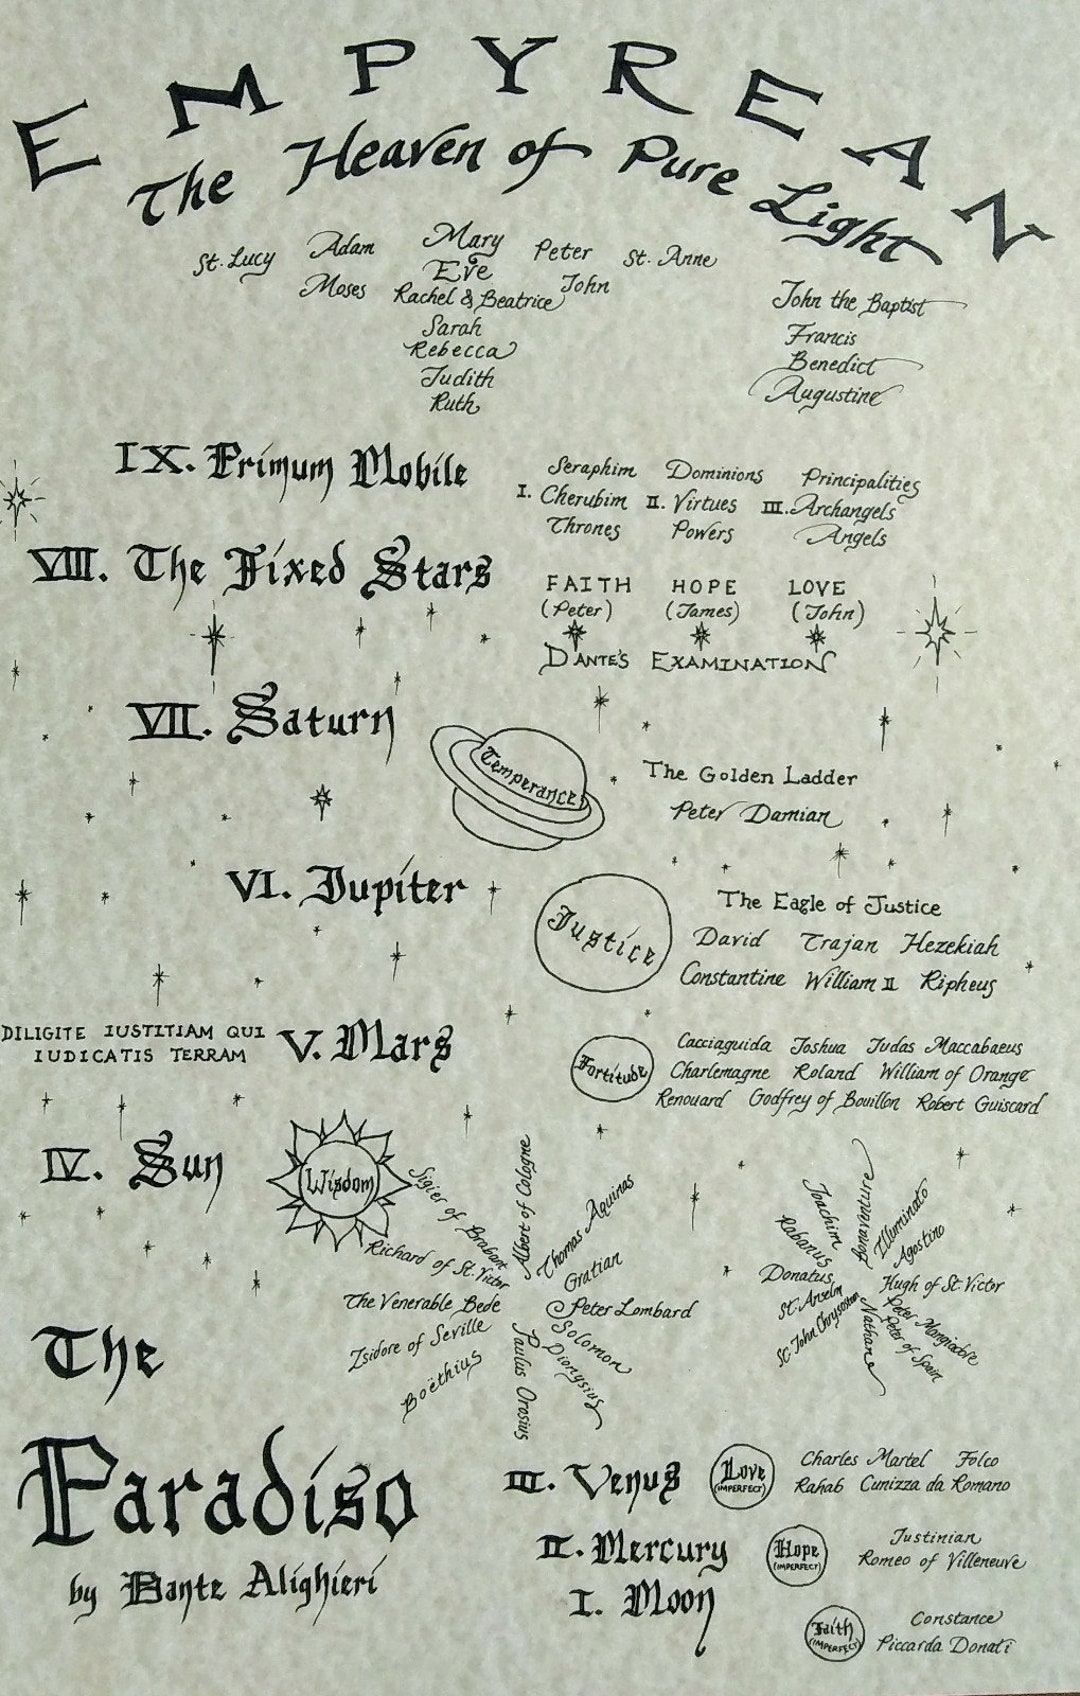 EMPYREAN
The Heaven of Pure Light
St. Lucy Adam Mary Peter St. Anne
Moses Eve John
Rachel & Beatrice
Sarah
Rebecca
Judith
Ruth
John the Baptist
Francis
Benedict
Augustine
IX. Primum Mobile
Seraphim Dominions Principalities
I. Cherubim II. Virtues III. Archangels
Thrones Powers Angels
VIII. The Fixed Stars
FAITH HOPE LOVE
(Peter) (James) (John)
DANTE'S EXAMINATION
VII. Saturn
Temperance
The Golden Ladder
Peter Damian
VI. Jupiter
Justice
The Eagle of Justice
David Trajan Hezekiah
Constantine William II Ripheus
DILIGITE IUSTITIAM QUI
IUDICATIS TERRAM
V. Mars
Fortitude
Cacciaguida Joshua Judas Maccabaeus
Charlemagne Roland William of Orange
Renouard Godfrey of Bouillon Robert Guiscard
IV. Sun
Wisdom
Albert of Cologne
Thomas Aquinas
Gratian
Peter Lombard
Solomon
Dionysius
Paulus Orosius
Boëthius
Isidore of Seville
The Venerable Bede
Richard of St. Victor
Sigier of Brabant
Bonaventure
Illuminato
Agostino
Hugh of St. Victor
Peter Mangiadore
Peter of Spain
Nathan
St. John Chrysostom
St. Anselm
Donatus
Rabanus
Joachim
The
Paradiso
by Dante Alighieri
III. Venus
Love
(IMPERFECT)
Charles Martel Folco
Rahab Cunizza da Romano
II. Mercury
Hope
(IMPERFECT)
Justinian
Romeo of Villeneuve
I. Moon
Faith
(IMPERFECT)
Constance
Piccarda Donati